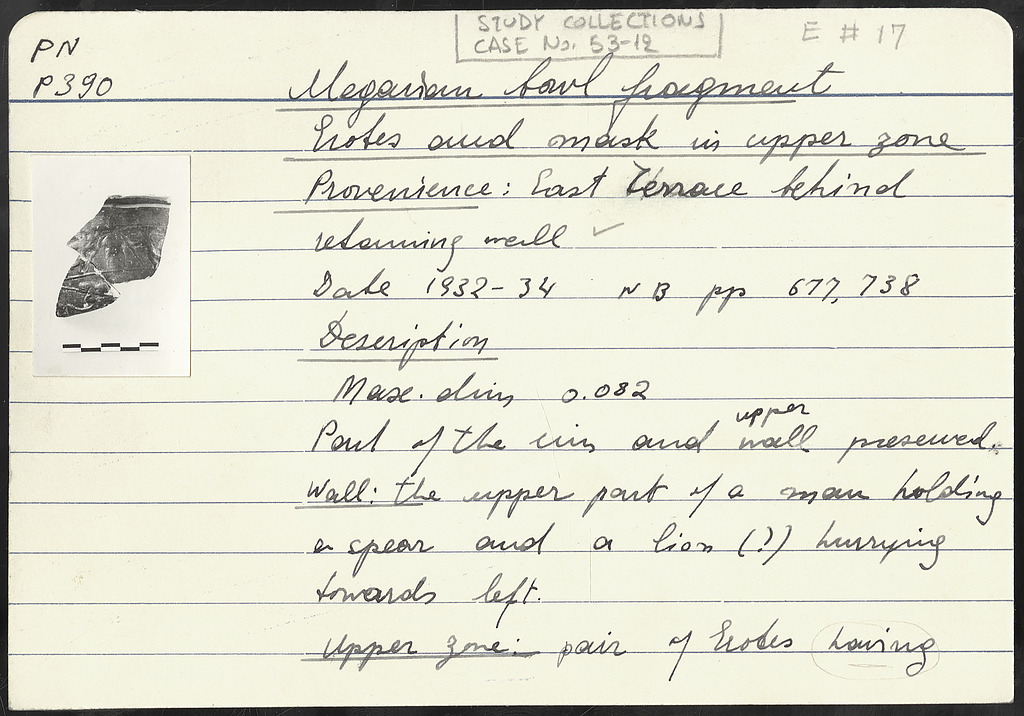 STUDY COLLECTIONS
CASE No. 53-12
E # 17
PN
P390
Megarian bowl fragment
Erotes and mask in upper zone
Provenience: East Terrace behind
retaining wall ✓
Date 1932-34 NB pp 677, 738
Description
Max. dim 0.082
Part of the rim and upper wall preserved.
Wall: the upper part of a man holding
a spear and a lion (?) hurrying
towards left.
Upper zone: pair of Erotes having